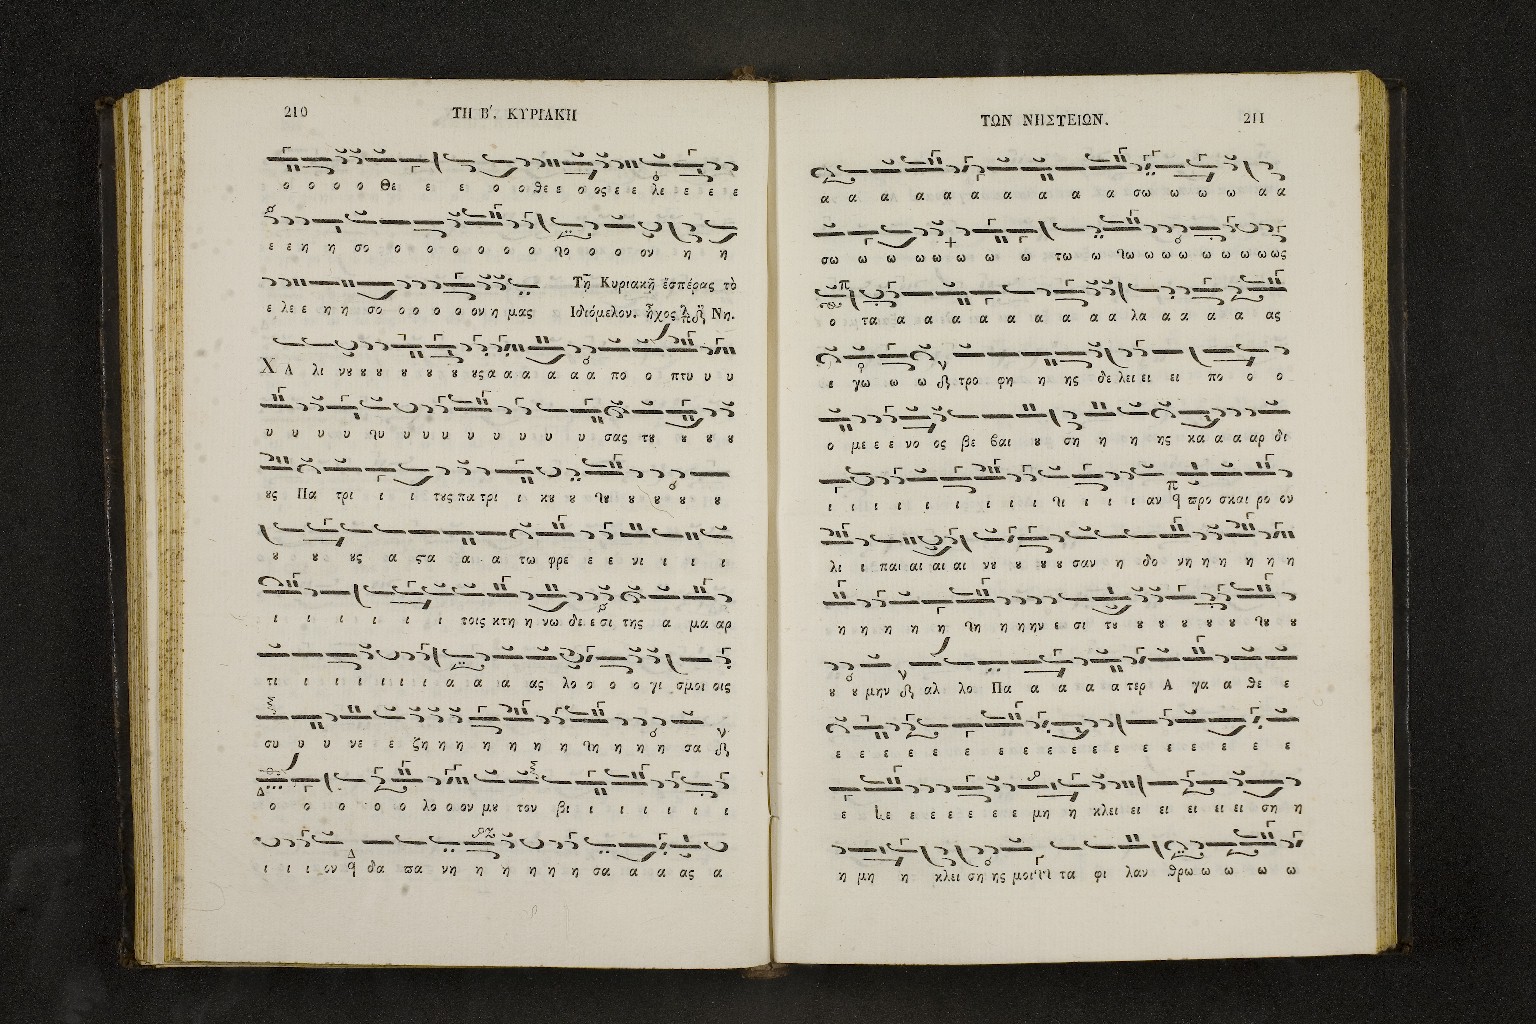 210
ΤΗ Β΄. ΚΥΡΙΑΚΗ
ο ο ο ο Θε ε ε ο ο θε ε ο ος ε ε λε ε ε ε ε
ε ε η η σο ο ο ο ο ο ο ο ο ο ον η η
ε λε ε η η σο ο ο ο ο ον η μας
Τῇ Κυριακῇ ἑσπέρας τὸ
Ἰδιόμελον. ἦχος Νη.
Χ Α λι νȣ ȣ ȣ ȣ ȣ ȣ ȣς α α α α α α πο ο πτυ υ υ
υ υ υ υ υ υ υ υ υ υ υ υ υ σας τȣ ȣ ȣ ȣ
ȣς Πα τρι ι ι τȣς πα τρι ι κȣ ȣ ȣ ȣ ȣ ȣ ȣ
ȣ ȣ ȣς α πα α α τω φρε ε ε νι ι ι ι
ι ι ι ι ι ι τοις κτη η νω δε ε σι της α μα αρ
τι ι ι ι ι ι ι α α α ας λο ο ο ο γι σμοι οις
συ υ υ νε ε ζη η η η η η η η η η η σα
ο ο ο ο ο λο ο ον μȣ τον βι ι ι ι ι ι ι
ι ι ι ον δα πα νη η η η η η σα α α ας α
ΤΩΝ ΝΗΣΤΕΙΩΝ.
211
α α α α α α α α α α α σω ω ω ω α α
σω ω ω ω ω ω ω ω τω ω ω ω ω ω ω ω ω ω ως
ο τα α α α α α α α α α λα α α α α ας
ε γω ω ω τρο φη η ης δε λει ει ει πο ο ο
ο με ε ε νο ος βε βαι ȣ ση η η ης κα α α αρ δι
ι ι ι ι ι ι ι ι ι ι ι ι ι αν προ σκαι ρο ον
λι ι παι αι αι αι νȣ ȣ ȣ ȣ σαν η δο νη η η η η η
η η η η η η η η ην ε σι τȣ ȣ ȣ ȣ ȣ ȣ ȣ ȣ
ȣ ȣ μην αλ λο Πα α α α α τερ Α γα α θε ε
ε ε ε ε ε ε ε ε ε ε ε ε ε ε ε ε ε
ε ε ε ε ε ε ε ε μη η κλει ει ει ει ει ει ση η
η μη η κλει ση ης μοι τα φι λαν θρω ω ω ω ω